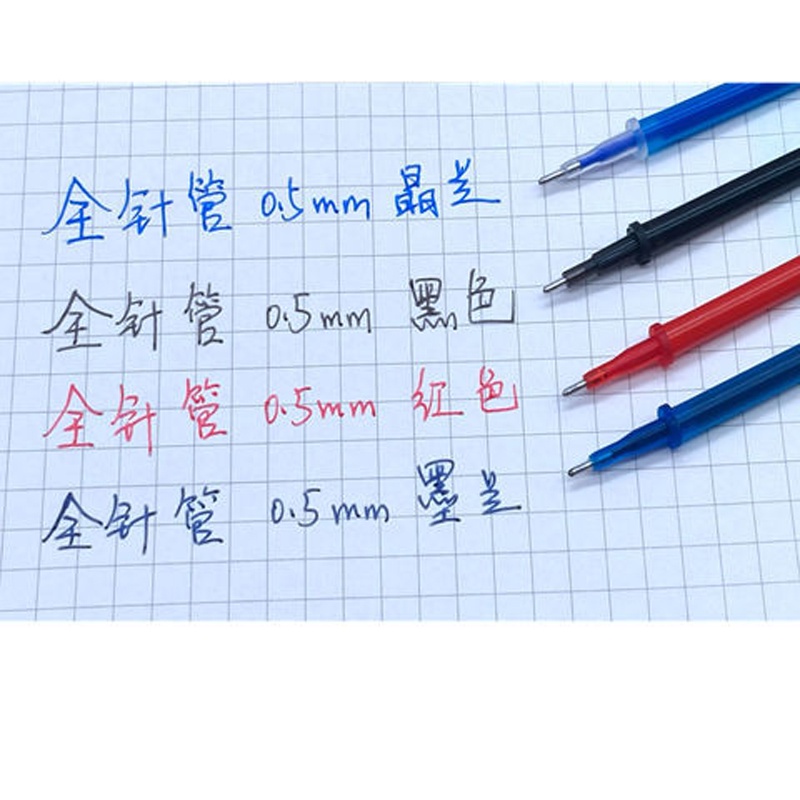 全针管 0.5mm 晶兰
全针管 0.5mm 黑色
全针管 0.5mm 红色
全针管 0.5mm 墨兰